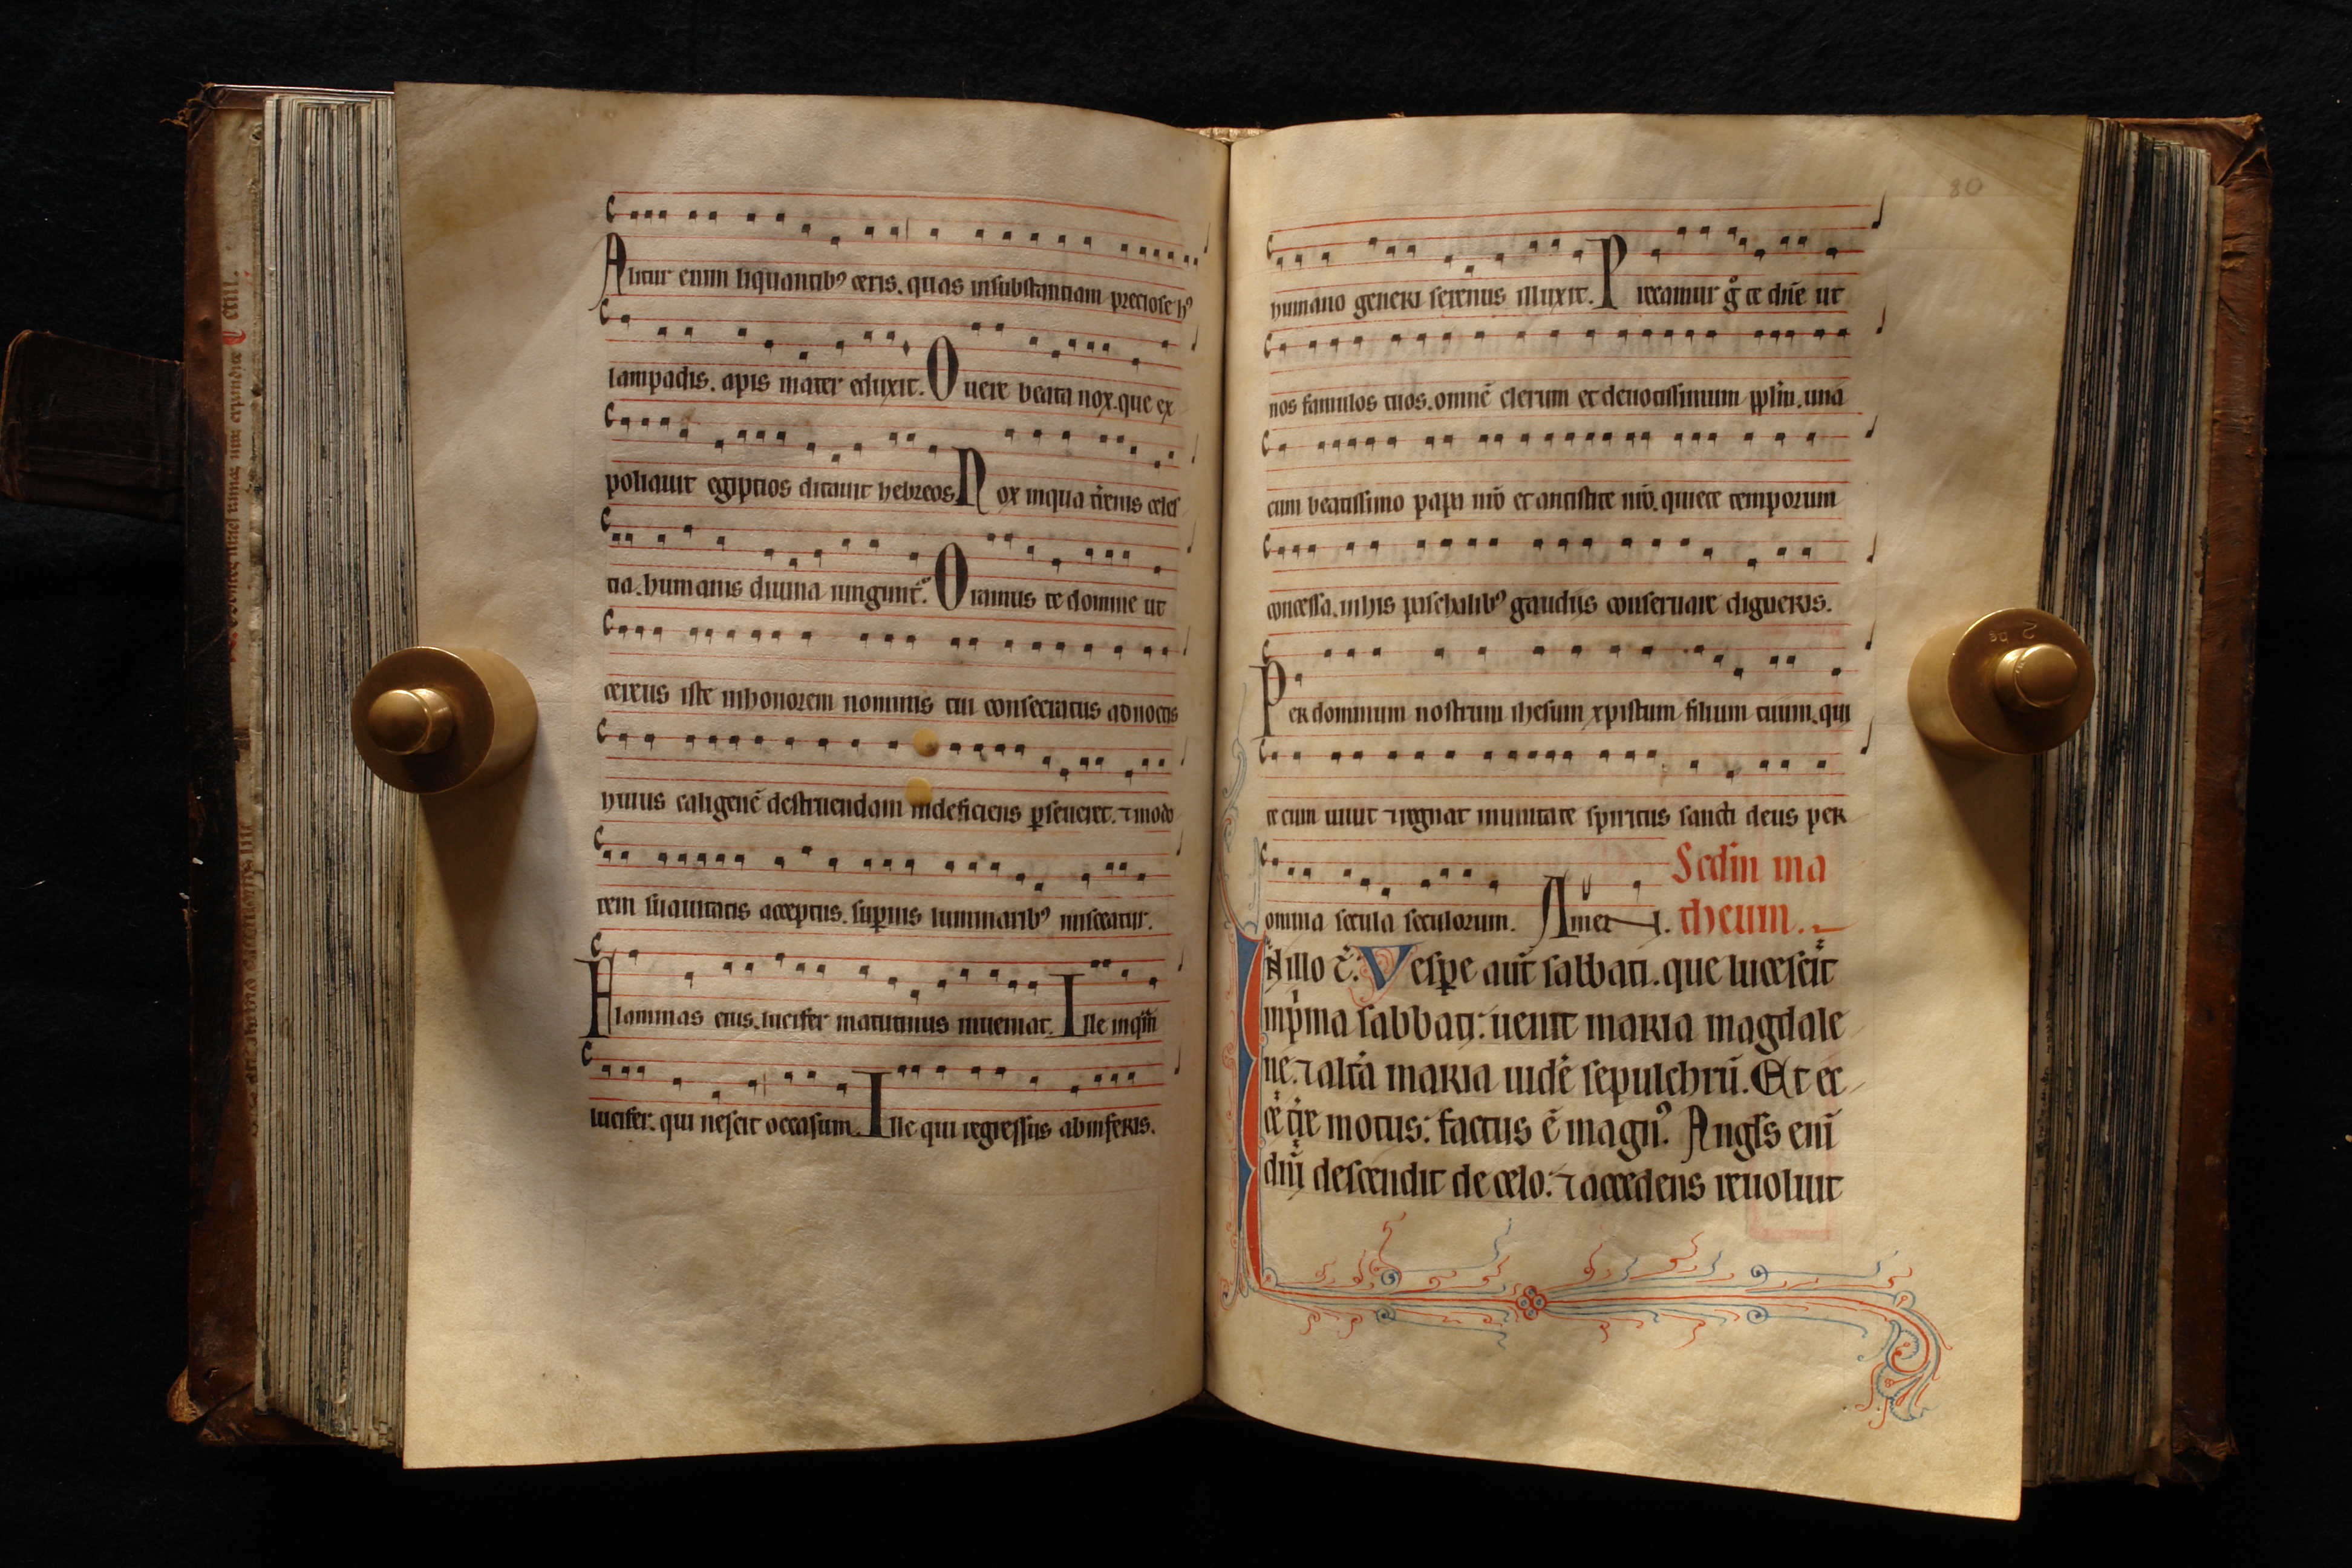 Alitur enim liquantibꝰ ceris. quas insubstantiam preciose hꝰ
lampadis. apis mater eduxit. O uere beata nox. que ex
poliauit egiptios ditauit hebreos. Nox inqua t̄renis celes
tia. humanis diuina iungunt᷑. Oramus te domine ut
cereus iste inhonorem nominis tui consecratus adnoctis
huius caliginē destruendam indeficiens ꝑseueret. ⁊ inodo
rem suauitatis acceptus. suꝑnis luminaribꝰ misceatur.
Flammas eius. lucifer matutinus inueniat. Ille inqm̄
lucifer. qui nescit occasum. Ille qui regressus abinferis.
80
humano generi serenus illuxit. Precamur gͦ te dn̄e ut
nos famulos tuos. omnē clerum et deuotissimum pplm̄. una
cum beatissimo papa nr̄o et antistite nr̄o. quiete temporum
concessa. inhis paschalibꝰ gaudiis conseruare digneris.
Per dominum nostrum ihesum xpistum filium tuum. qui
tecum uiuit ⁊ regnat inunitate spiritus sancti deus per
omnia secula seculorum. Amen. Scdm̄ ma
theum.
In illo t̄. Vesꝑe aut̄ sabbati. que lucescit
inpͥma sabbati: uenit maria magdale
ne. ⁊ altᵃa maria uidē sepulchrū. Et ec
cē t̄re motus: factus ē magnꝰ. Angl̄s enī
dn̄i descendit de celo: ⁊ accedens reuoluit